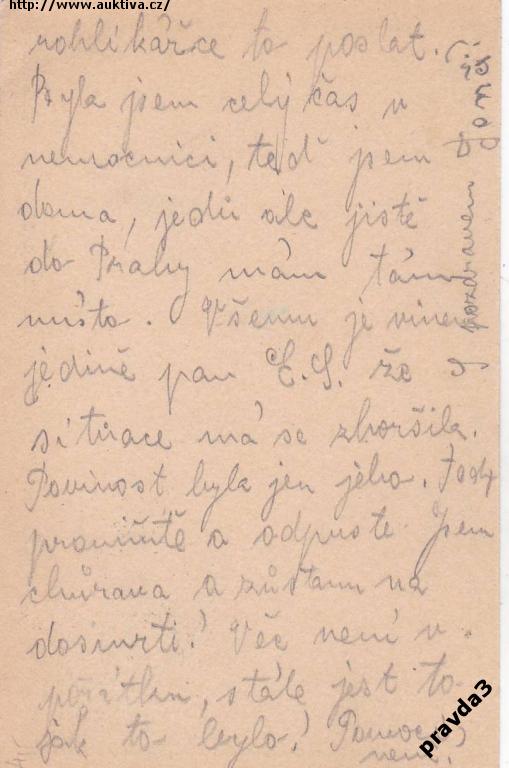 http://www.auktiva.cz/
rohlíkářce to poslat.
Byla jsem celý čas v
nemocnici, teď jsem
doma, jedu ale jistě
do Prahy mám tam
místo. Všemu je vinen
jedině pan E.S. že
situace má se zhoršila.
Povinost byla jen jeho. Tedy
promiňtě a odpuste Jsem
churava a zůstanu na
dosmrti! Věc není v
pořátku, stále jest to
jak to bylo! Pomoc
není!
S pozdravem
pravda3